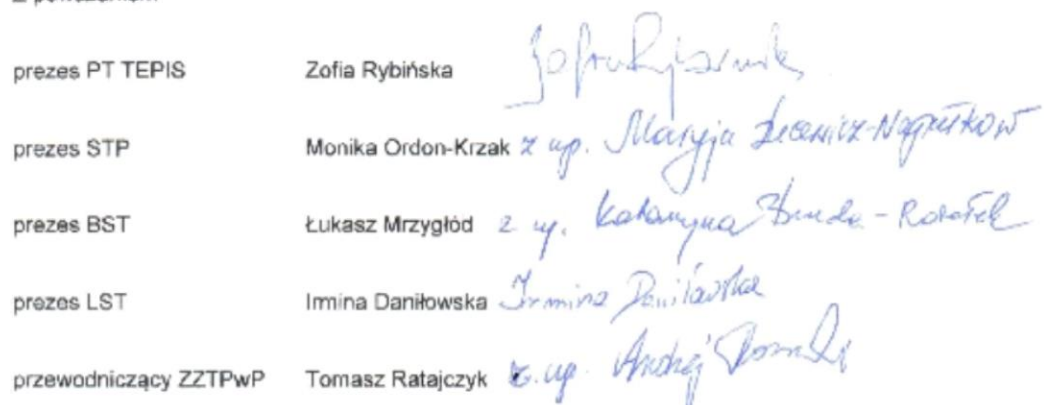 prezes PT TEPIS Zofia Rybińska Zofia Rybińska
prezes STP Monika Ordon-Krzak z up. Maryja
prezes BST Łukasz Mrzygłód z up. Katarzyna
prezes LST Irmina Daniłowska Irmina Daniłowska
przewodniczący ZZTPwP Tomasz Ratajczyk z up. Andrzej